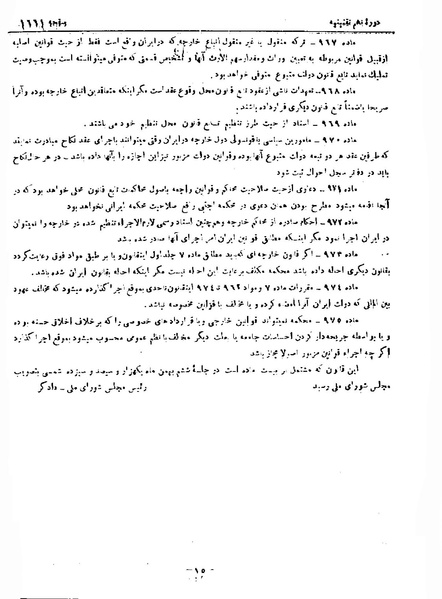 دورهٔ نهم تقنینیه
ماده ۹۶۷ - ترکه منقول یا غیر منقول اتباع خارجه که در ایران واقع است فقط از حیث قوانین اصلیه
از قبیل قوانین مربوطه به تعیین وراث و مقدار سهم الارث آنها و تشخیص قسمتی که متوفی میتوانسته است بموجب وصیت
تملیک نماید تابع قانون دولت متبوع متوفی خواهد بود.
ماده ۹۶۸ - تعهدات ناشی از عقود تابع قانون محل وقوع عقد است مگر اینکه متعاقدین اتباع خارجه بوده و آنرا
صریحاً یا ضمناً تابع قانون دیگری قرار داده باشند.
ماده ۹۶۹ - اسناد از حیث طرز تنظیم تابع قانون محل تنظیم خود می باشند.
ماده ۹۷۰ - مامورین سیاسی یا قونسولی دول خارجه در ایران وقتی میتوانند باجرای عقد نکاح مبادرت نمایند
که طرفین عقد هر دو تبعه دولت متبوع آنها بوده و قوانین دولت مزبور نیز این اجازه را بآنها داده باشد - در هر حال نکاح
باید در دفاتر سجل احوال ثبت شود
ماده ۹۷۱ - دعاوی از حیث صلاحیت محاکم و قوانین راجعه باصول محاکمات تابع قانون محلی خواهد بود که در
آنجا اقامه میشود مطرح بودن همان دعوی در محکمه اجنبی رافع صلاحیت محکمه ایرانی نخواهد بود
ماده ۹۷۲ - احکام صادره از محاکم خارجه و همچنین اسناد رسمی لازم الاجراء تنظیم شده در خارجه را نمیتوان
در ایران اجرا نمود مگر اینکه مطابق قوانین ایران امر باجرای آنها صادر شده باشد
ماده ۹۷۳ - اگر قانون خارجه ای که باید مطابق ماده ۷ جلد اول اینقانون و یا بر طبق مواد فوق رعایت گردد
بقانون دیگری احاله داده باشد محکمه مکلف برعایت این احاله نیست مگر اینکه احاله بقانون ایران شده باشد.
ماده ۹۷۴ - مقررات ماده ۷ و مواد ۹۶۲ تا ۹۷۴ اینقانون تا حدی بموقع اجرا گذارده میشود که مخالف عهود
بین المللی که دولت ایران آنرا امضاء کرده و یا مخالف با قوانین مخصوصه نباشد.
ماده ۹۷۵ - محکمه نمیتواند قوانین خارجی و یا قرارداد های خصوصی را که بر خلاف اخلاق حسنه بوده
و یا بواسطه جریحه دار کردن احساسات جامعه یا بعلت دیگر مخالف با نظم عمومی محسوب میشود بموقع اجرا گذارد
اگر چه اجراء قوانین مزبور اصولاً مجاز باشد
این قانون که مشتمل بر بیست ماده است در جلسهٔ ششم بهمن ماه یکهزار و سیصد و سیزده شمسی بتصویب
مجلس شورای ملی رسید
رئیس مجلس شورای ملی - دادگر
- ۱۵ -